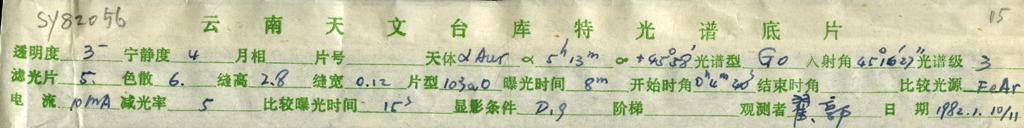 SY82056 云南天文台库特光谱底片 15
透明度 3- 宁静度 4 月相 片号 天体 α Aur α 5h 13m ∞ +45°58' 光谱型 G0 入射角 45°16'27" 光谱级 3
滤光片 5. 色散 6. 缝高 2.8 缝宽 0.12 片型 103aO 曝光时间 8m 开始时角 0h4m40s 结束时角 比较光源 FeAr
电流 10mA 减光率 5 比较曝光时间 15s 显影条件 D19 阶梯 观测者 翟、郭 日期 1982.1.10/11